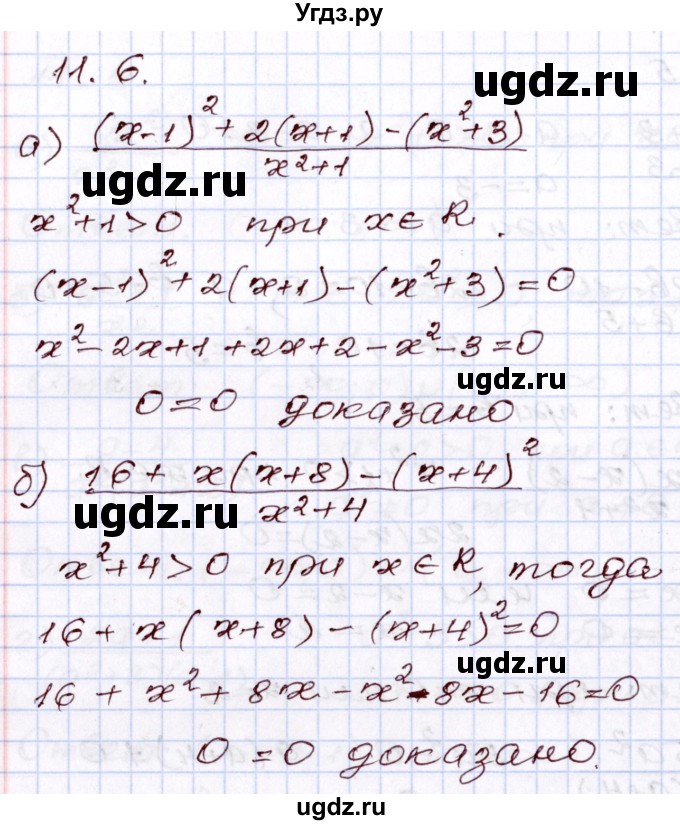 Угдз.ру
11. 6.
ugdz.ru
а) ((x-1)² + 2(x+1) - (x²+3))/(x²+1)
ugdz.ru
x²+1>0 при x∈R.
(x-1)²+2(x+1)-(x²+3)=0
x²-2x+1+2x+2-x²-3=0
ugdz.ru
0=0 доказано
б) (16+x(x+8)-(x+4)²)/(x²+4)
ugdz.ru
x²+4>0 при x∈R, тогда
16+x(x+8)-(x+4)²=0
ugdz.ru
16+x²+8x-x²-8x-16=0
0=0 доказано.
ugdz.ru